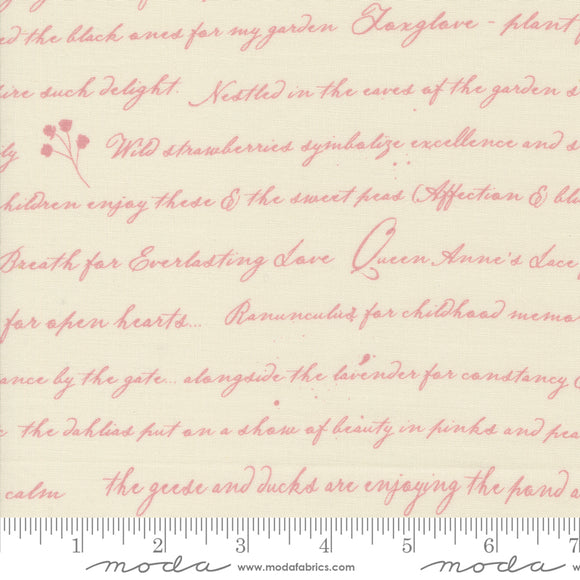 ed the black ones for my garden Foxglove - plant f
ire such delight. Nestled in the eaves of the garden s
ly Wild strawberries symbolize excellence and s
hildren enjoy these & the sweet peas (Affection & bli
Breath for Everlasting Love Queen Anne's Lace
for open hearts... Ranunculus for childhood memo
ance by the gate... alongside the lavender for constancy
the dahlias put on a show of beauty in pinks and pea
calm the geese and ducks are enjoying the pond a
1 2 3 4 5 6 7
moda www.modafabrics.com moda www.modafabrics.com moda